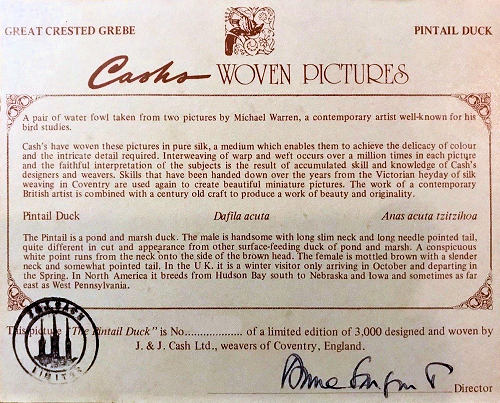 GREAT CRESTED GREBE
PINTAIL DUCK
Cash's WOVEN PICTURES
A pair of water fowl taken from two pictures by Michael Warren, a contemporary artist well-known for his
bird studies.
Cash's have woven these pictures in pure silk, a medium which enables them to achieve the delicacy of colour
and the intricate detail required. Interweaving of warp and weft occurs over a million times in each picture
and the faithful interpretation of the subjects is the result of accumulated skill and knowledge of Cash's
designers and weavers. Skills that have been handed down over the years from the Victorian heyday of silk
weaving in Coventry are used again to create beautiful miniature pictures. The work of a contemporary
British artist is combined with a century old craft to produce a work of beauty and originality.
Pintail Duck Dafila acuta Anas acuta tzitzihoa
The Pintail is a pond and marsh duck. The male is handsome with long slim neck and long needle pointed tail,
quite different in cut and appearance from other surface-feeding duck of pond and marsh. A conspicuous
white point runs from the neck onto the side of the brown head. The female is mottled brown with a slender
neck and somewhat pointed tail. In the U.K. it is a winter visitor only arriving in October and departing in
the Spring. In North America it breeds from Hudson Bay south to Nebraska and Iowa and sometimes as far
east as West Pennsylvania.
This picture "The Pintail Duck" is No.................. of a limited edition of 3,000 designed and woven by
J. & J. Cash Ltd., weavers of Coventry, England.
J. & J. CASH
LIMITED
Director